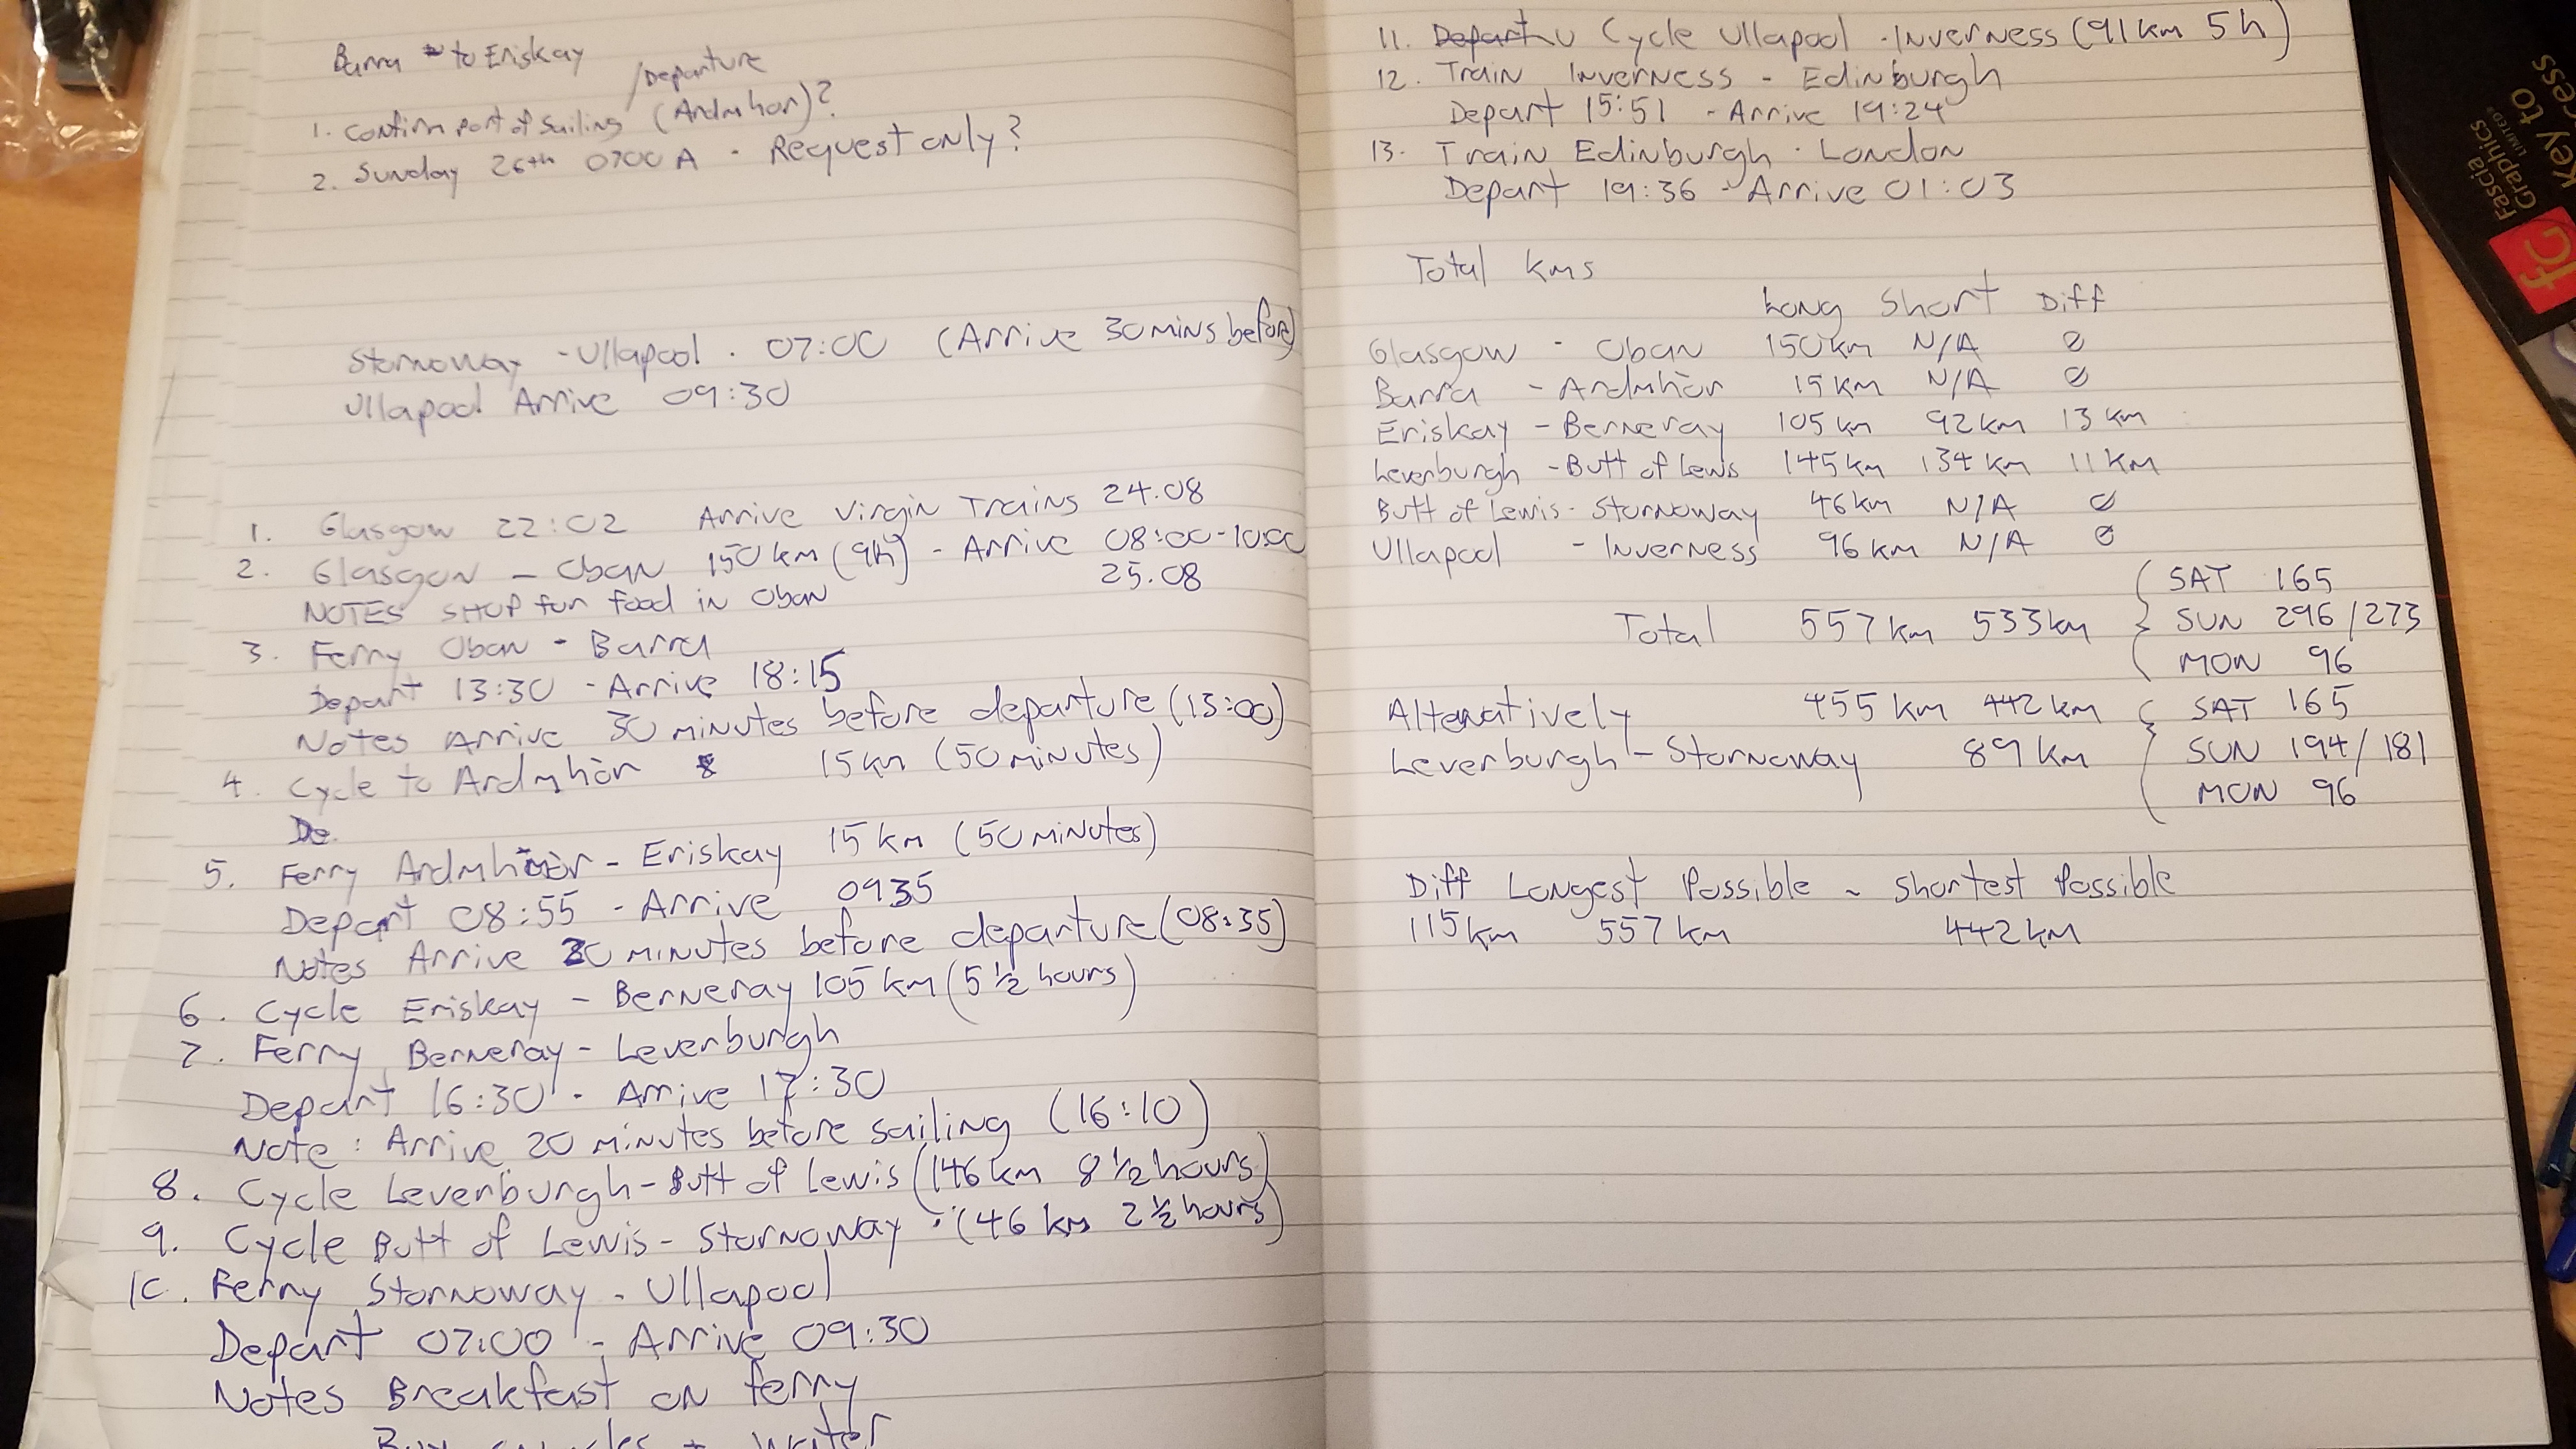 Barra to Eriskay
/Departure
1. Confirm port of sailing (Ardmhor)?
2. Sunday 26th 0700 A - Request only?
Stornoway - Ullapool . 07:00 (Arrive 30mins before)
Ullapool Arrive 09:30
1. Glasgow 22:02 Arrive Virgin Trains 24.08
2. Glasgow - Oban 150km (9h) - Arrive 08:00-1000
NOTES stop for food in Oban 25.08
3. Ferry Oban - Barra
Depart 13:30 - Arrive 18:15
Notes Arrive 30 minutes before departure (13:00)
4. Cycle to Ardmhòr 15km (50 minutes)
De.
5. Ferry Ardmhòr - Eriskay 15km (50 minutes)
Depart 08:55 - Arrive 0935
Notes Arrive 20 minutes before departure (08:35)
6. Cycle Eriskay - Berneray 105km (5 1/2 hours)
7. Ferry Berneray - Leverburgh
Depart 16:30 - Arrive 17:30
Note: Arrive 20 minutes before sailing (16:10)
8. Cycle Leverburgh - Butt of Lewis (146km 8 1/2 hours)
9. Cycle Butt of Lewis - Stornoway : (46km 2 1/2 hours)
10. Ferry Stornoway - Ullapool
Depart 07:00 - Arrive 09:30
Notes Breakfast on ferry
11. Depart Cycle Ullapool - Inverness (91km 5h)
12. Train Inverness - Edinburgh
Depart 15:51 - Arrive 19:24
13. Train Edinburgh - London
Depart 19:36 - Arrive 01:03
Total kms
Long Short Diff
Glasgow - Oban 150km N/A 0
Barra - Ardmhòr 15km N/A 0
Eriskay - Berneray 105km 92km 13km
Leverburgh - Butt of Lewis 145km 134km 11km
Butt of Lewis - Stornoway 46km N/A 0
Ullapool - Inverness 96km N/A 0
Total 557km 533km
SAT 165
SUN 296/273
MON 96
Alternatively 455km 442km
Leverburgh - Stornoway 89km
SAT 165
SUN 194/181
MON 96
Diff Longest Possible - Shortest Possible
115km 557km 442km
Fascia
Graphics
LIMITED
fG
Key to